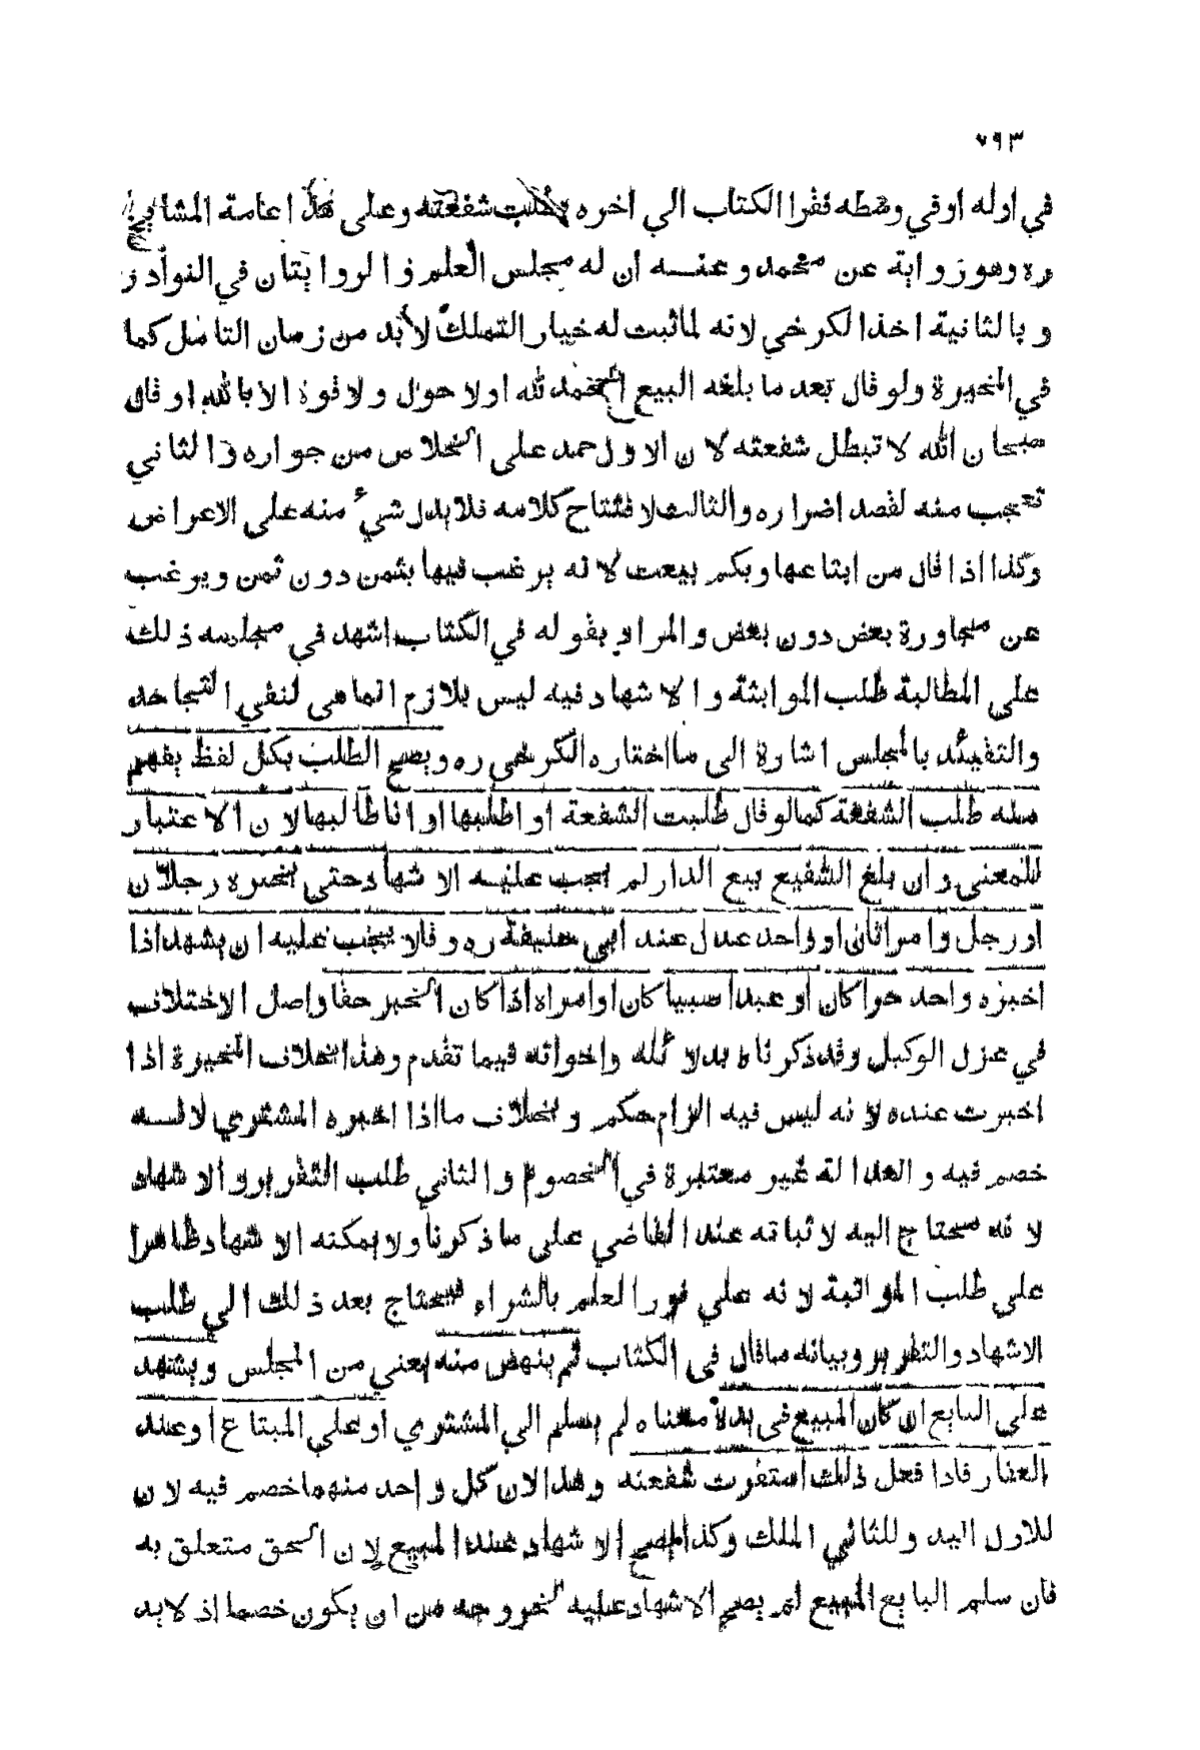 ٧٩٣
في اوله او في وسطه فقرا الكتاب الي اخره بطلت شفعته وعلى هذا عامة المشايخ
ره وهو رواية عن محمد وعنه ان له مجلس العلم والروايتان في النوادر
وبالثانية اخذ الكرخي لانه لما ثبت له خيار التملك لا بد من زمان التامل كما
في المخيرة ولو قال بعد ما بلغه البيع الحمد لله او لا حول ولا قوة الا بالله او قال
سبحان الله لا تبطل شفعته لان الاول حمد على الخلاص من جواره والثاني
تعجب منه لقصد اضراره والثالث لافتتاح كلامه فلا يدل شيء منه على الاعراض
وكذا اذا قال من ابتاعها وبكم بيعت لانه يرغب فيها بثمن دون ثمن ويرغب
عن مجاورة بعض دون بعض والمراد بقوله في الكتاب اشهد في مجلسه ذلك
على المطالبة طلب المواثبة والاشهاد فيه ليس بلازم انما هي لنفي التجاحد
والتقييد بالمجلس اشارة الى ما اختاره الكرخي ره ويصح الطلب بكل لفظ يفهم
منه طلب الشفعة كما لو قال طلبت الشفعة او اطلبها او انا طالبها لان الاعتبار
للمعنى وان بلغ الشفيع بيع الدار لم يجب عليه الاشهاد حتى يخبره رجلان
او رجل وامراتان او واحد عدل عند ابي حنيفة ره وقالا يجب عليه ان يشهد اذا
اخبره واحد حرا كان او عبدا صبيا كان او امراه اذا كان الخبر حقا واصل الاختلاف
في عزل الوكيل وقد ذكرناه بدلائله واخواته فيما تقدم وهذا بخلاف المخيرة اذا
اخبرت عنده لانه ليس فيه الزام حكم وبخلاف ما اذا اخبره المشتري لانه
خصم فيه والعدالة غير معتبرة في الخصوم والثاني طلب التقرير والاشهاد
لانه محتاج اليه لاثباته عند القاضي على ما ذكرنا ولا يمكنه الاشهاد ظاهرا
على طلب المواثبة لانه علي فور العلم بالشراء فيحتاج بعد ذلك الي طلب
الاشهاد والتقرير وبيانه ما قال في الكتاب ثم ينهض منه يعني من المجلس ويشهد
على البايع ان كان المبيع في يده معناه لم يسلم الي المشتري او علي المبتاع او عند
العقار فاذا فعل ذلك استقرت شفعته وهذا لان كل واحد منهما خصم فيه لان
للاول اليد وللثاني الملك وكذا يصح الاشهاد عند المبيع لان الحق متعلق به
فان سلم البايع المبيع لم يصح الاشهاد عليه لخروجه من ان يكون خصما اذ لا يد